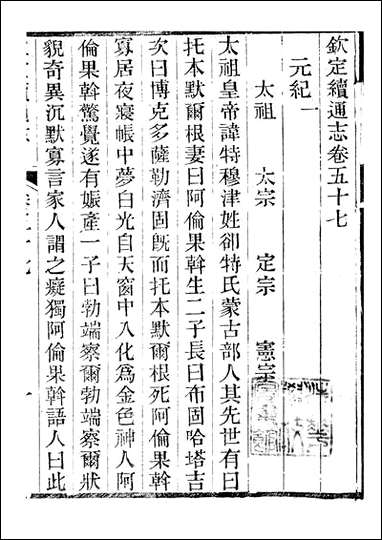 欽定續通志卷五十七
元紀一
太祖 太宗 定宗 憲宗
太祖皇帝諱特穆津姓卻特氏蒙古部人其先世有曰
托本默爾根妻曰阿倫果斡生二子長曰布固哈塔吉
次曰博克多薩勒濟固旣而托本默爾根死阿倫果斡
寡居夜寢帳中夢白光自天窗中入化為金色神人阿
倫果斡驚覺遂有娠產一子曰勃端察爾勃端察爾狀
貌奇異沉默寡言家人謂之癡獨阿倫果斡語人曰此